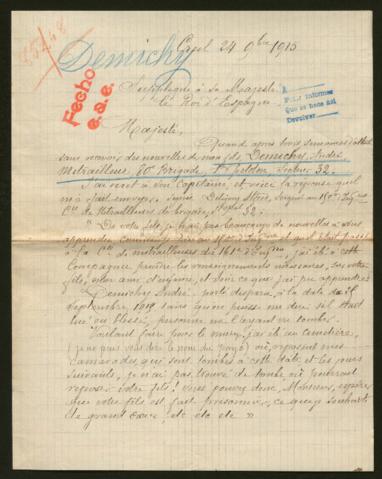 85448
Demichy
Creil 24 9bre 1915
Supplique à Sa Majesté
Le Roi d'Espagne
Fecho
e.a.e.
A
P.I.P. informes
Que se haga así
Devolver
Majesté,
Quand après trois semaines d'attente
sans recevoir des nouvelles de mon fils Demichy, André
Mitrailleur, 60e Brigade, 1er peloton Secteur 32.
J'ai écrit à son Capitaine, et voici la réponse qu'il
m'a fait envoyer, Alfred, Sergent au
Cie de Mitrailleuses de brigade, 32.
" De votre fils, je n'ai pas beaucoup de nouvelles à vous
apprendre, comme
à la Cie de mitrailleuses du 161e d'Infrie, j'ai été à cette
Compagnie prendre les renseignements nécessaires, sur votre
fils, mon ami d'enfance, et voici ce que j'ai pu apprendre:
Demichy André, porté disparu, à la date du
Septembre 1915 sans qu'on puisse me dire s'il était
tué ou blessé, personne ne l'ayant vu tomber.
Voulant faire pour le mieux, j'ai été au cimetière,
(je ne peux vous dire le nom du pays) où reposent mes
camarades, qui sont tombés à cette date et les jours
suivants, je n'ai pas trouvé de tombe où pourrait
reposer votre fils! Vous pouvez donc, Monsieur, espérer
que votre fils est fait prisonnier, ce que je souhaite
de grand cœur, etc etc etc "